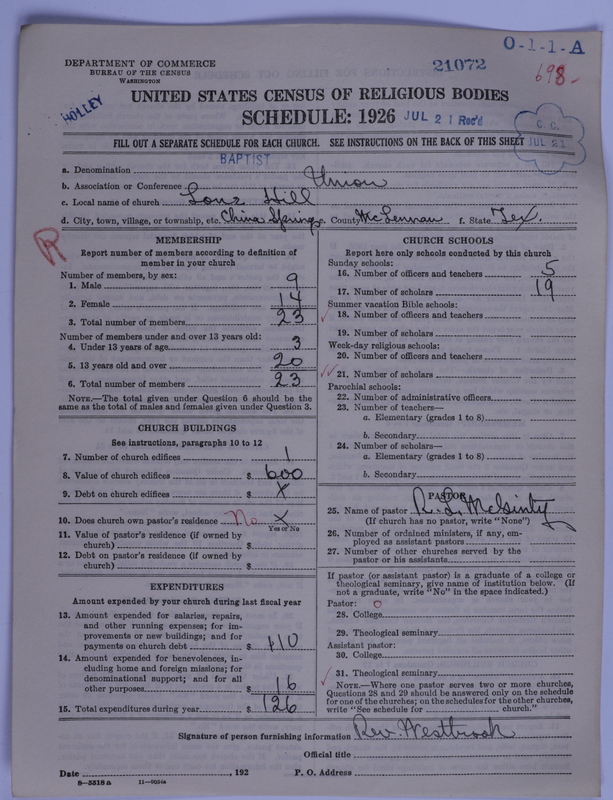 O-1-1-A
DEPARTMENT OF COMMERCE
BUREAU OF THE CENSUS
WASHINGTON
21072
698-
HOLLEY
UNITED STATES CENSUS OF RELIGIOUS BODIES
SCHEDULE: 1926 JUL 21 Rec'd
C. C.
JUL 21
FILL OUT A SEPARATE SCHEDULE FOR EACH CHURCH. SEE INSTRUCTIONS ON THE BACK OF THIS SHEET
a. Denomination BAPTIST
b. Association or Conference Union
c. Local name of church Long Hill
d. City, town, village, or township, etc. China Springs e. County McLennan f. State Tex.
R
MEMBERSHIP
Report number of members according to definition of
member in your church
Number of members, by sex:
1. Male 9
2. Female 14
3. Total number of members 23
Number of members under and over 13 years old:
4. Under 13 years of age 3
5. 13 years old and over 20
6. Total number of members 23
NOTE.—The total given under Question 6 should be the
same as the total of males and females given under Question 3.
CHURCH BUILDINGS
See instructions, paragraphs 10 to 12
7. Number of church edifices 1
8. Value of church edifices $ 600
9. Debt on church edifices $ X
10. Does church own pastor's residence No X
Yes or No
11. Value of pastor's residence (if owned by
church) $
12. Debt on pastor's residence (if owned by
church) $
EXPENDITURES
Amount expended by your church during last fiscal year
13. Amount expended for salaries, repairs,
and other running expenses; for im-
provements or new buildings; and for
payments on church debt $ 110
14. Amount expended for benevolences, in-
cluding home and foreign missions; for
denominational support; and for all
other purposes $ 16
15. Total expenditures during year $ 126
CHURCH SCHOOLS
Report here only schools conducted by this church
Sunday schools:
16. Number of officers and teachers 5
17. Number of scholars 19
Summer vacation Bible schools:
18. Number of officers and teachers
19. Number of scholars
Week-day religious schools:
20. Number of officers and teachers
21. Number of scholars
Parochial schools:
22. Number of administrative officers
23. Number of teachers—
a. Elementary (grades 1 to 8)
b. Secondary
24. Number of scholars—
a. Elementary (grades 1 to 8)
b. Secondary
PASTOR
25. Name of pastor R. L. McGinty
(If church has no pastor, write "None")
26. Number of ordained ministers, if any, em-
ployed as assistant pastors
27. Number of other churches served by the
pastor or his assistants
If pastor (or assistant pastor) is a graduate of a college or
theological seminary, give name of institution below. (If
not a graduate, write "No" in the space indicated.)
Pastor: O
28. College
29. Theological seminary
Assistant pastor:
30. College
31. Theological seminary
NOTE.—Where one pastor serves two or more churches,
Questions 28 and 29 should be answered only on the schedule
for one of the churches; on the schedules for the other churches,
write "See schedule for church."
Signature of person furnishing information Rev. Westbrook
Official title
Date , 192 P. O. Address
8—5518a 11—9054a